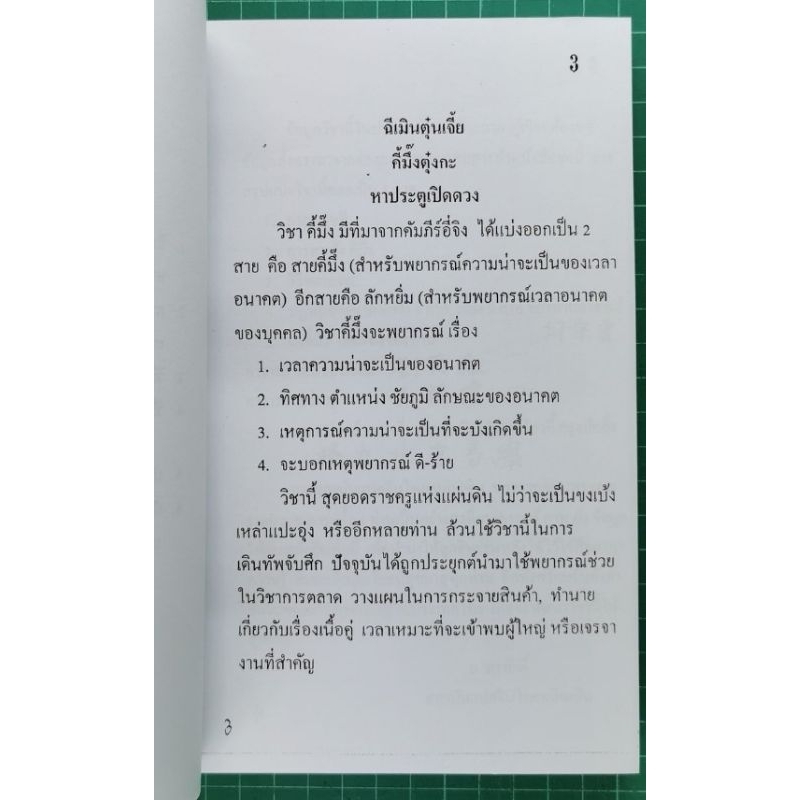 3
ฉีเมินตุ๋นเจี้ย
คี้มึ๊งตุ่งกะ
หาประตูเปิดดวง
วิชา คี้มึ๊ง มีที่มาจากคัมภีร์อี่จิง ได้แบ่งออกเป็น 2
สาย คือ สายคี้มึ๊ง (สำหรับพยากรณ์ความน่าจะเป็นของเวลา
อนาคต) อีกสายคือ ลักหยิ่ม (สำหรับพยากรณ์เวลาอนาคต
ของบุคคล) วิชาคี้มึ๊งจะพยากรณ์ เรื่อง
1. เวลาความน่าจะเป็นของอนาคต
2. ทิศทาง ตำแหน่ง ชัยภูมิ ลักษณะของอนาคต
3. เหตุการณ์ความน่าจะเป็นที่จะบังเกิดขึ้น
4. จะบอกเหตุพยากรณ์ ดี-ร้าย
วิชานี้ สุดยอดราชครูแห่งแผ่นดิน ไม่ว่าจะเป็นขงเบ้ง
เหล่าแปะอุ่ง หรืออีกหลายท่าน ล้วนใช้วิชานี้ในการ
เดินทัพจับศึก ปัจจุบันได้ถูกประยุกต์นำมาใช้พยากรณ์ช่วย
ในวิชาการตลาด วางแผนในการกระจายสินค้า, ทำนาย
เกี่ยวกับเรื่องเนื้อคู่ เวลาเหมาะที่จะเข้าพบผู้ใหญ่ หรือเจรจา
งานที่สำคัญ
3